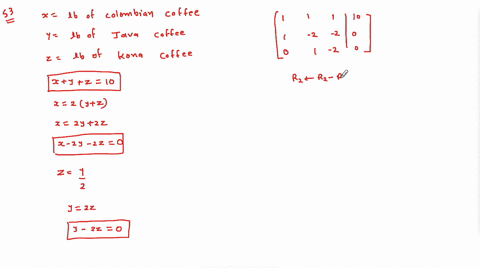 53
x = lb of colombian coffee
y = lb of Java coffee
z = lb of kona coffee
x+y+z = 10
x = 2(y+z)
x = 2y+2z
x-2y-2z = 0
z = y/2
y = 2z
y-2z = 0
1 1 1 | 10
1 -2 -2 | 0
0 1 -2 | 0
R₂ ← R₂ - R